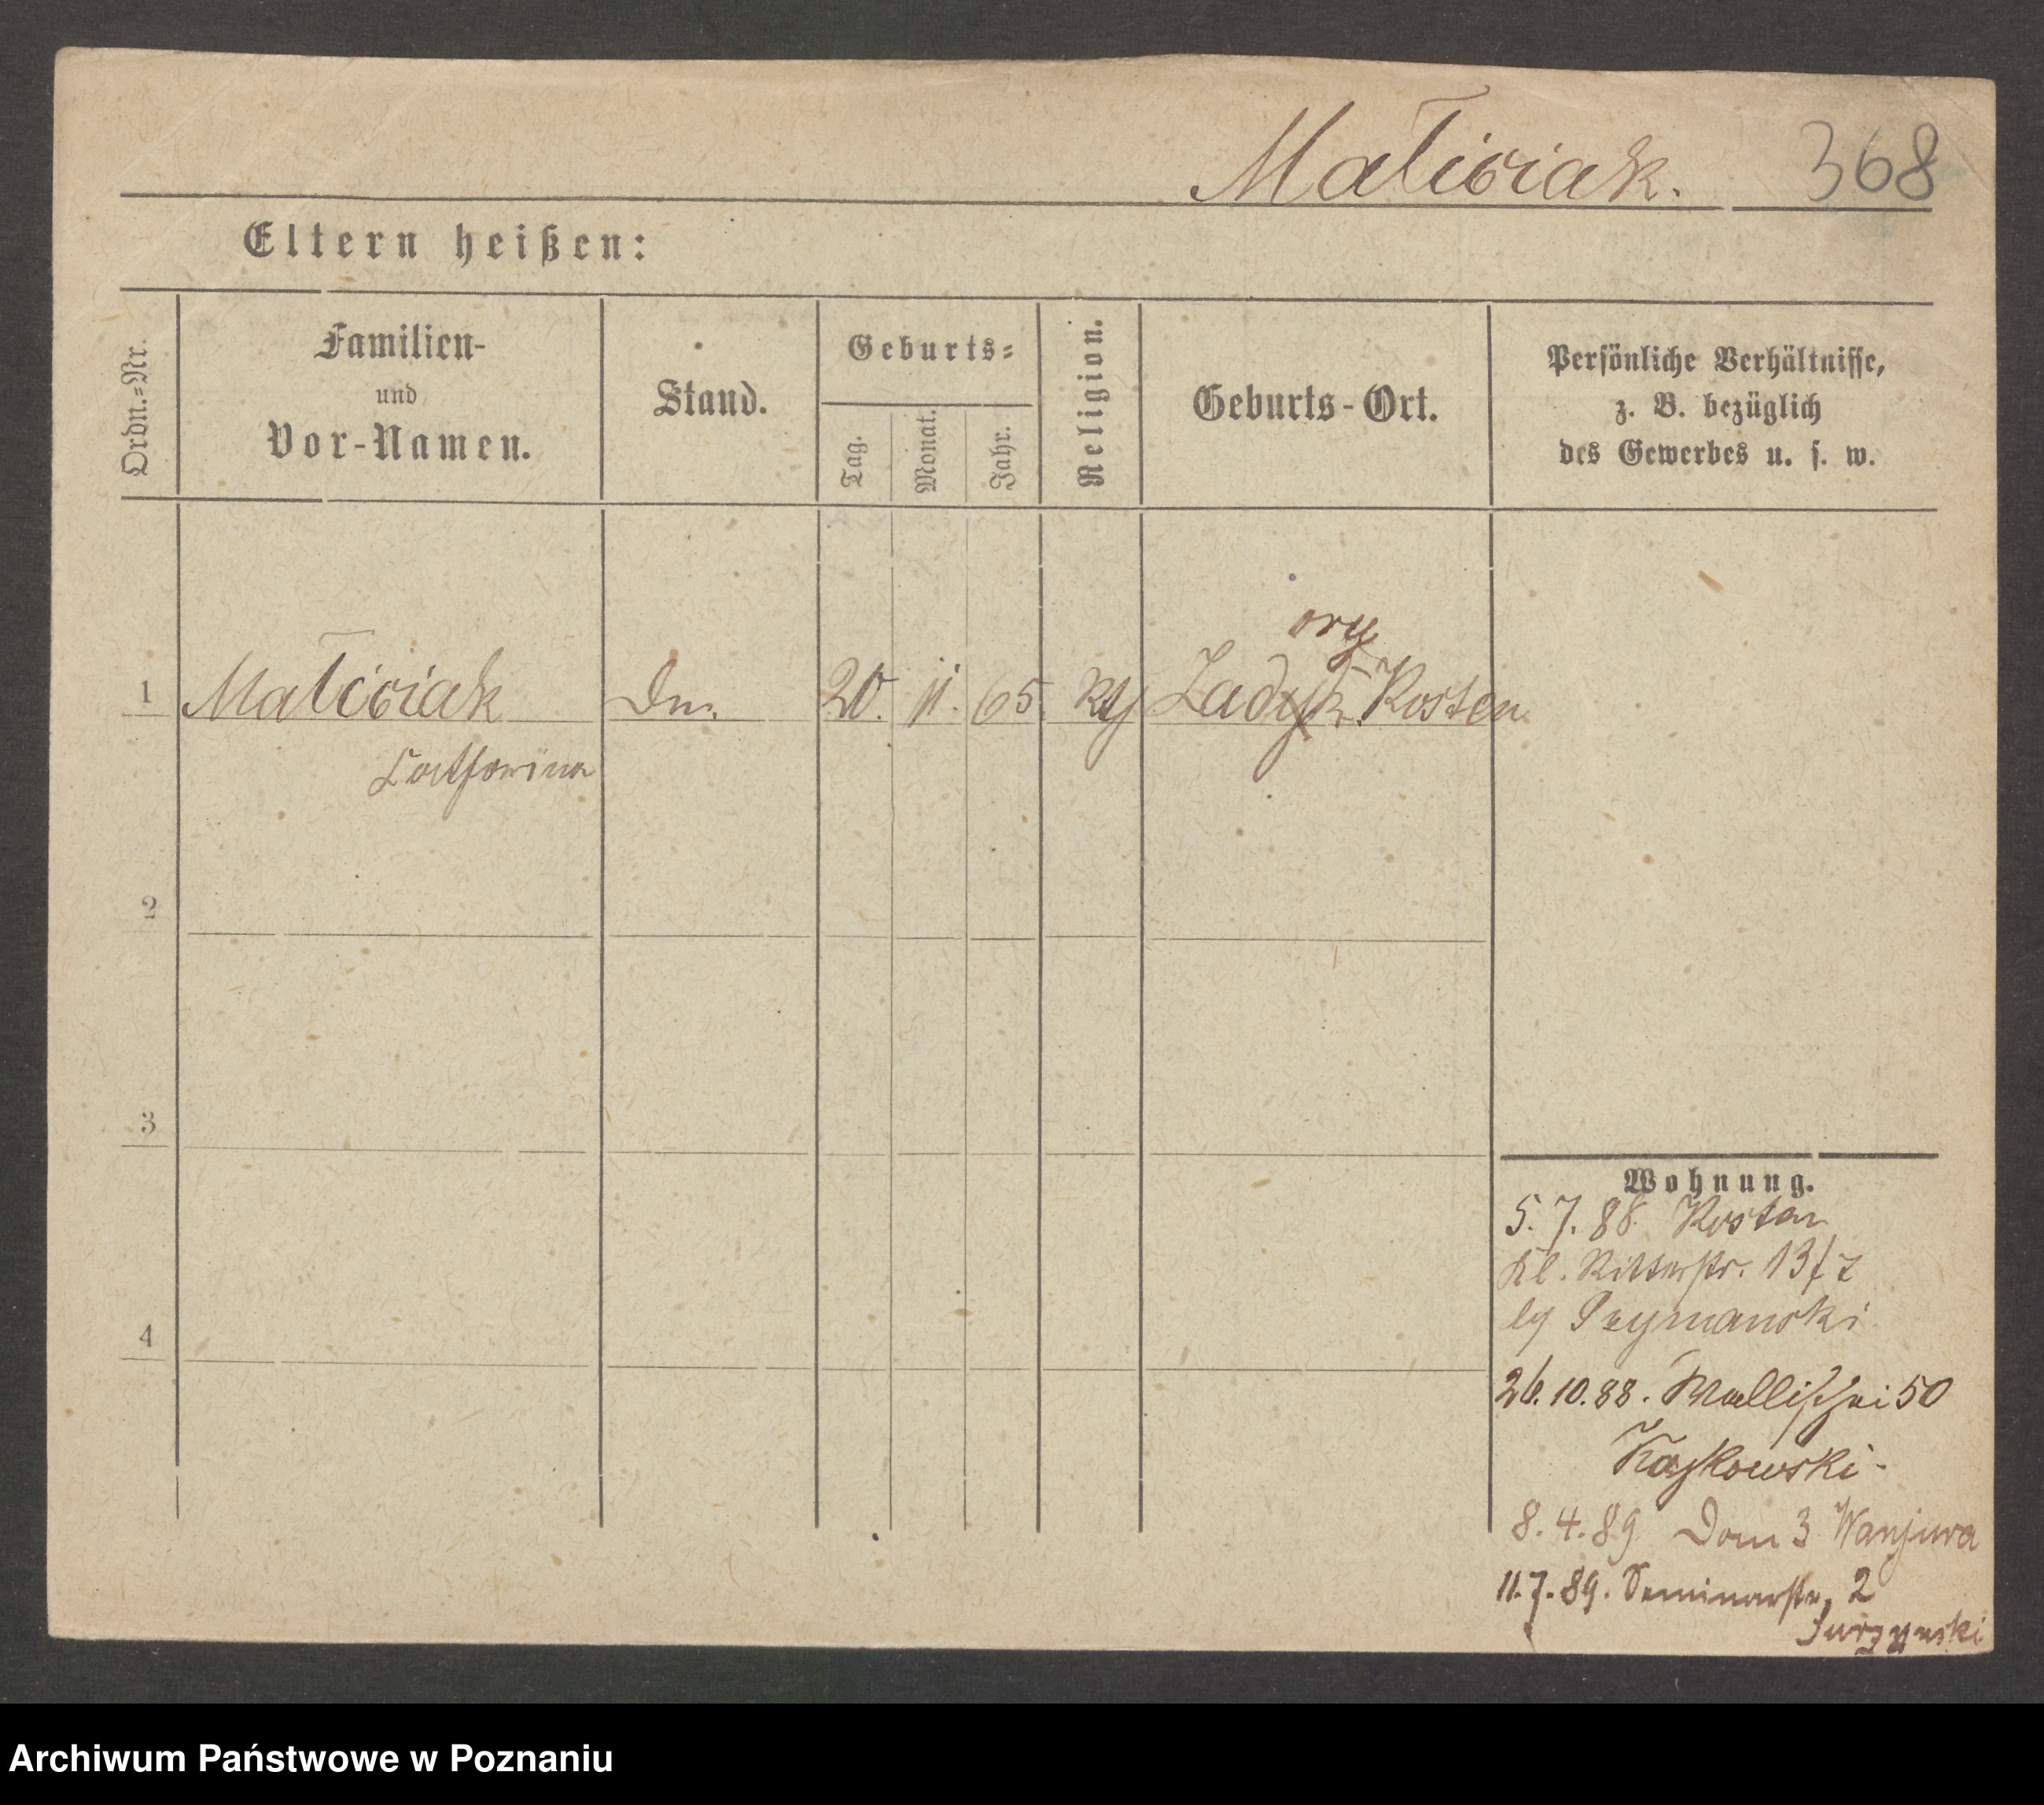 Maticiak. 368
Eltern heißen:
Ordn.=Nr.
Familien-
und
Vor-Namen.
Stand.
Geburts=
Tag.
Monat.
Jahr.
Religion.
Geburts-Ort.
Persönliche Verhältnisse,
z. B. bezüglich
des Gewerbes u. s. w.
ory
1 Maticiak 20. 11. 65. Kosten
Catharina
2
3
4
Wohnung.
5. 7. 88. Kosten
Kl. Ritterstr. 13
26. 10. 88. Wallischei 50
8. 4. 89 Dom 3
11. 7. 89. Seminarstr. 2
Archiwum Państwowe w Poznaniu